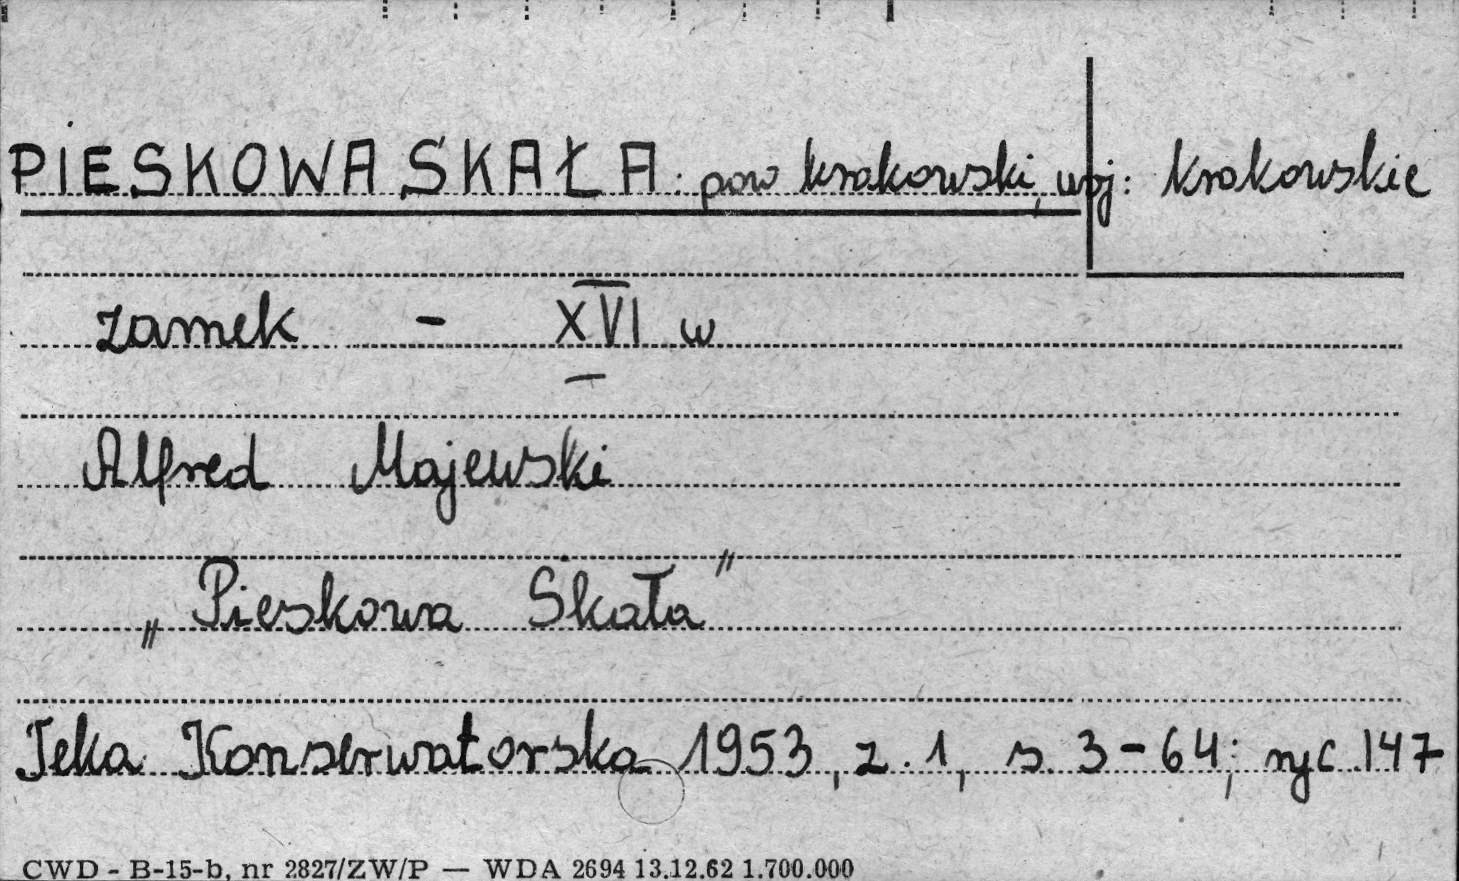 PIESKOWA SKAŁA. pow krakowski, woj: krakowskie
zamek - XVI w
Alfred Majewski
„Pieskowa Skała"
Teka Konserwatorska 1953, z. 1, s. 3-64; ryc. 147
CWD - B-15-b, nr 2827/ZW/P — WDA 2694 13.12.62 1.700.000